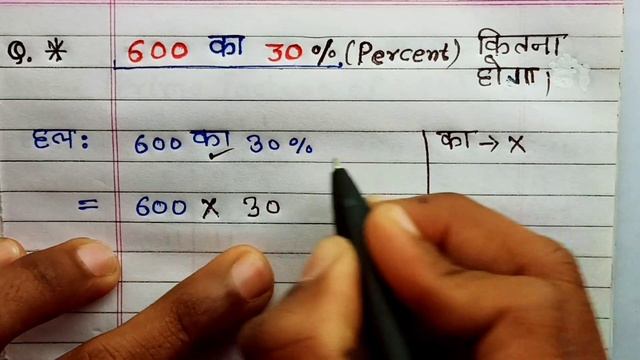 Q. * 600 का 30% (Percent) कितना
होगा।
हल: 600 का 30% का → x
= 600 x 30